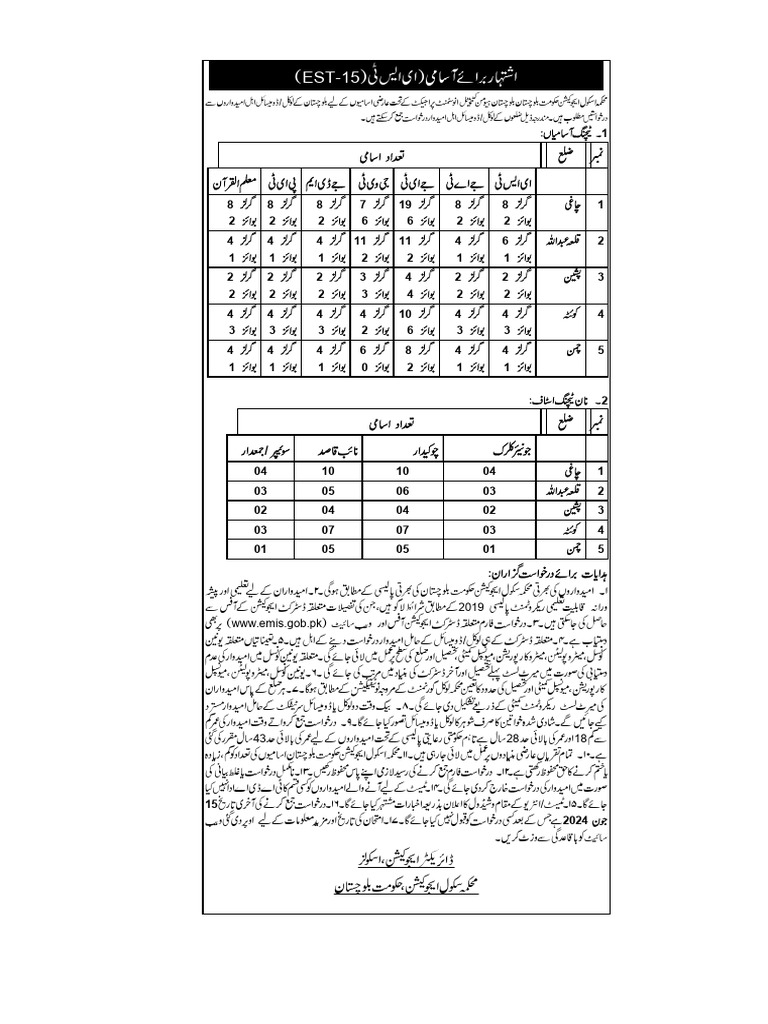 اشتہار برائے آسامی (ای ایس ٹی (EST-15)
محکمہ اسکول ایجوکیشن حکومت بلوچستان بلوچستان ہیومن کیپیٹل انوسٹمنٹ پراجیکٹ کے تحت عارضی اسامیوں کے لیے بلوچستان کے لوکل/ڈومیسائل اہل امیدواروں سے
درخواستیں مطلوب ہیں۔ مندرجہ ذیل ضلعوں کے لوکل/ڈومیسائل اہل امیدوار درخواست جمع کرسکتے ہیں۔
1۔ ٹیچنگ آسامیاں:
نمبر ضلع تعداد اسامی
ای ایس ٹی جے اے ٹی جے ای ٹی جی وی ٹی جے ڈی ایم پی ای ٹی معلم القرآن
1 چاغی گرلز 8 گرلز 8 گرلز 19 گرلز 7 گرلز 8 گرلز 8 گرلز 8
بوائز 2 بوائز 2 بوائز 6 بوائز 6 بوائز 2 بوائز 2 بوائز 2
2 قلعہ عبداللہ گرلز 6 گرلز 4 گرلز 11 گرلز 11 گرلز 4 گرلز 4 گرلز 4
بوائز 1 بوائز 1 بوائز 2 بوائز 2 بوائز 1 بوائز 1 بوائز 1
3 پشین گرلز 2 گرلز 2 گرلز 4 گرلز 3 گرلز 2 گرلز 2 گرلز 2
بوائز 2 بوائز 2 بوائز 4 بوائز 3 بوائز 2 بوائز 2 بوائز 2
4 کوئٹہ گرلز 4 گرلز 4 گرلز 10 گرلز 4 گرلز 4 گرلز 4 گرلز 4
بوائز 3 بوائز 3 بوائز 6 بوائز 2 بوائز 3 بوائز 3 بوائز 3
5 چمن گرلز 4 گرلز 4 گرلز 8 گرلز 6 گرلز 4 گرلز 4 گرلز 4
بوائز 1 بوائز 1 بوائز 2 بوائز 0 بوائز 1 بوائز 1 بوائز 1
2۔ نان ٹیچنگ اسٹاف:
نمبر ضلع تعداد اسامی
جونیئر کلرک چوکیدار نائب قاصد سویپر/جمعدار
1 چاغی 04 10 10 04
2 قلعہ عبداللہ 03 06 05 03
3 پشین 02 04 04 02
4 کوئٹہ 03 07 07 03
5 چمن 01 05 05 01
ہدایات برائے درخواست گزاران:
۱۔ امیدواروں کی بھرتی محکمہ سکول ایجوکیشن حکومت بلوچستان کی بھرتی پالیسی کے مطابق ہوگی۔ ۲۔ امیدواران کے لیے تعلیمی اور پیشہ
ورانہ قابلیت تعلیمی ریکروٹمنٹ پالیسی 2019 کے مطابق شرائط لاگو ہیں، جن کی تفصیلات متعلقہ ڈسٹرکٹ ایجوکیشن کے آفس سے
حاصل کی جاسکتی ہیں۔ ۳۔ درخواست فارم متعلقہ ڈسٹرکٹ ایجوکیشن آفس اور ویب سائیٹ (www.emis.gob.pk) پر بھی
دستیاب ہے۔ ۴۔ متعلقہ ڈسٹرکٹ کے ہی لوکل/ڈومیسائل کے حامل امیدوار درخواست دینے کے اہل ہیں۔ ۵۔ تعیناتیاں متعلقہ یونین
کونسل، میٹروپولیٹن، میٹروکارپوریشن، میونسپل کمیٹی، تحصیل اور ضلع کی سطح پر عمل میں لائی جائے گی۔ متعلقہ یونین کونسل میں امیدوار کی عدم
دستیابی کی صورت میں میرٹ لسٹ پہلے تحصیل اور آخر ڈسٹرکٹ کی بنیاد میں مرتب کی جائے گی۔ ۶۔ یونین کونسل، میٹروپولیٹن، میونسپل
کارپوریشن، میونسپل کمیٹی اور تحصیل کی حدود کا تعین محکمہ لوکل گورنمنٹ کے مروجہ نوٹیفکیشن کے مطابق ہوگا۔ ۷۔ ہر ضلع کے پاس امیدواران
کی میرٹ لسٹ ریکروٹمنٹ کمیٹی کے ذریعے تشکیل دی جائے گی۔ ۸۔ بیک وقت دو لوکل یا ڈومیسائل سرٹیفکٹ کے حامل امیدوار مسترد
کیے جائیں گے۔ شادی شدہ خواتین کا صرف شوہر کا لوکل یا ڈومیسائل تصور کیا جائے گا۔ ۹۔ درخواست جمع کرواتے وقت امیدوار کی عمر کم
سے کم 18 اور عمر کی بالائی حد 28 سال ہے تاہم حکومتی رعایتی پالیسی کے تحت امیدواروں کے لیے عمر کی بالائی حد 43 سال مقرر کی گئی
ہے۔ ۱۰۔ تمام تقرریاں عارضی بنیادوں پر عمل میں لائی جا رہی ہیں۔ ۱۱۔ محکمہ اسکول ایجوکیشن حکومت بلوچستان اسامیوں کی تعداد کو کم، زیادہ
یا ختم کرنے کا حق محفوظ رکھتی ہے۔ ۱۲۔ درخواست فارم جمع کرنے کی رسید لازمی اپنے پاس محفوظ رکھیں۔ ۱۳۔ نامکمل درخواست یا غلط بیانی کی
صورت میں امیدوار کی درخواست خارج کردی جائے گی۔ ۱۴۔ ٹیسٹ کے لیے آنے والے امیدواروں کو کسی قسم کا ٹی اے ڈی اے ادا نہیں کیا
جائے گا۔ ۱۵۔ ٹیسٹ/انٹرویو کے مقام و شیڈول کا اعلان بذریعہ اخبارات مشتہر کیا جائے گا۔ ۱۶۔ درخواست جمع کرنے کی آخری تاریخ 15
جون 2024 ہے جس کے بعد کسی درخواست کو قبول نہیں کیا جائے گا۔ ۱۷۔ امتحان کی تاریخ اور مزید معلومات کے لیے اوپر دی گئی ویب
سائیٹ کو باقاعدگی سے وزٹ کریں۔
ڈائریکٹر ایجوکیشن، اسکولز
محکمہ سکول ایجوکیشن، حکومت بلوچستان